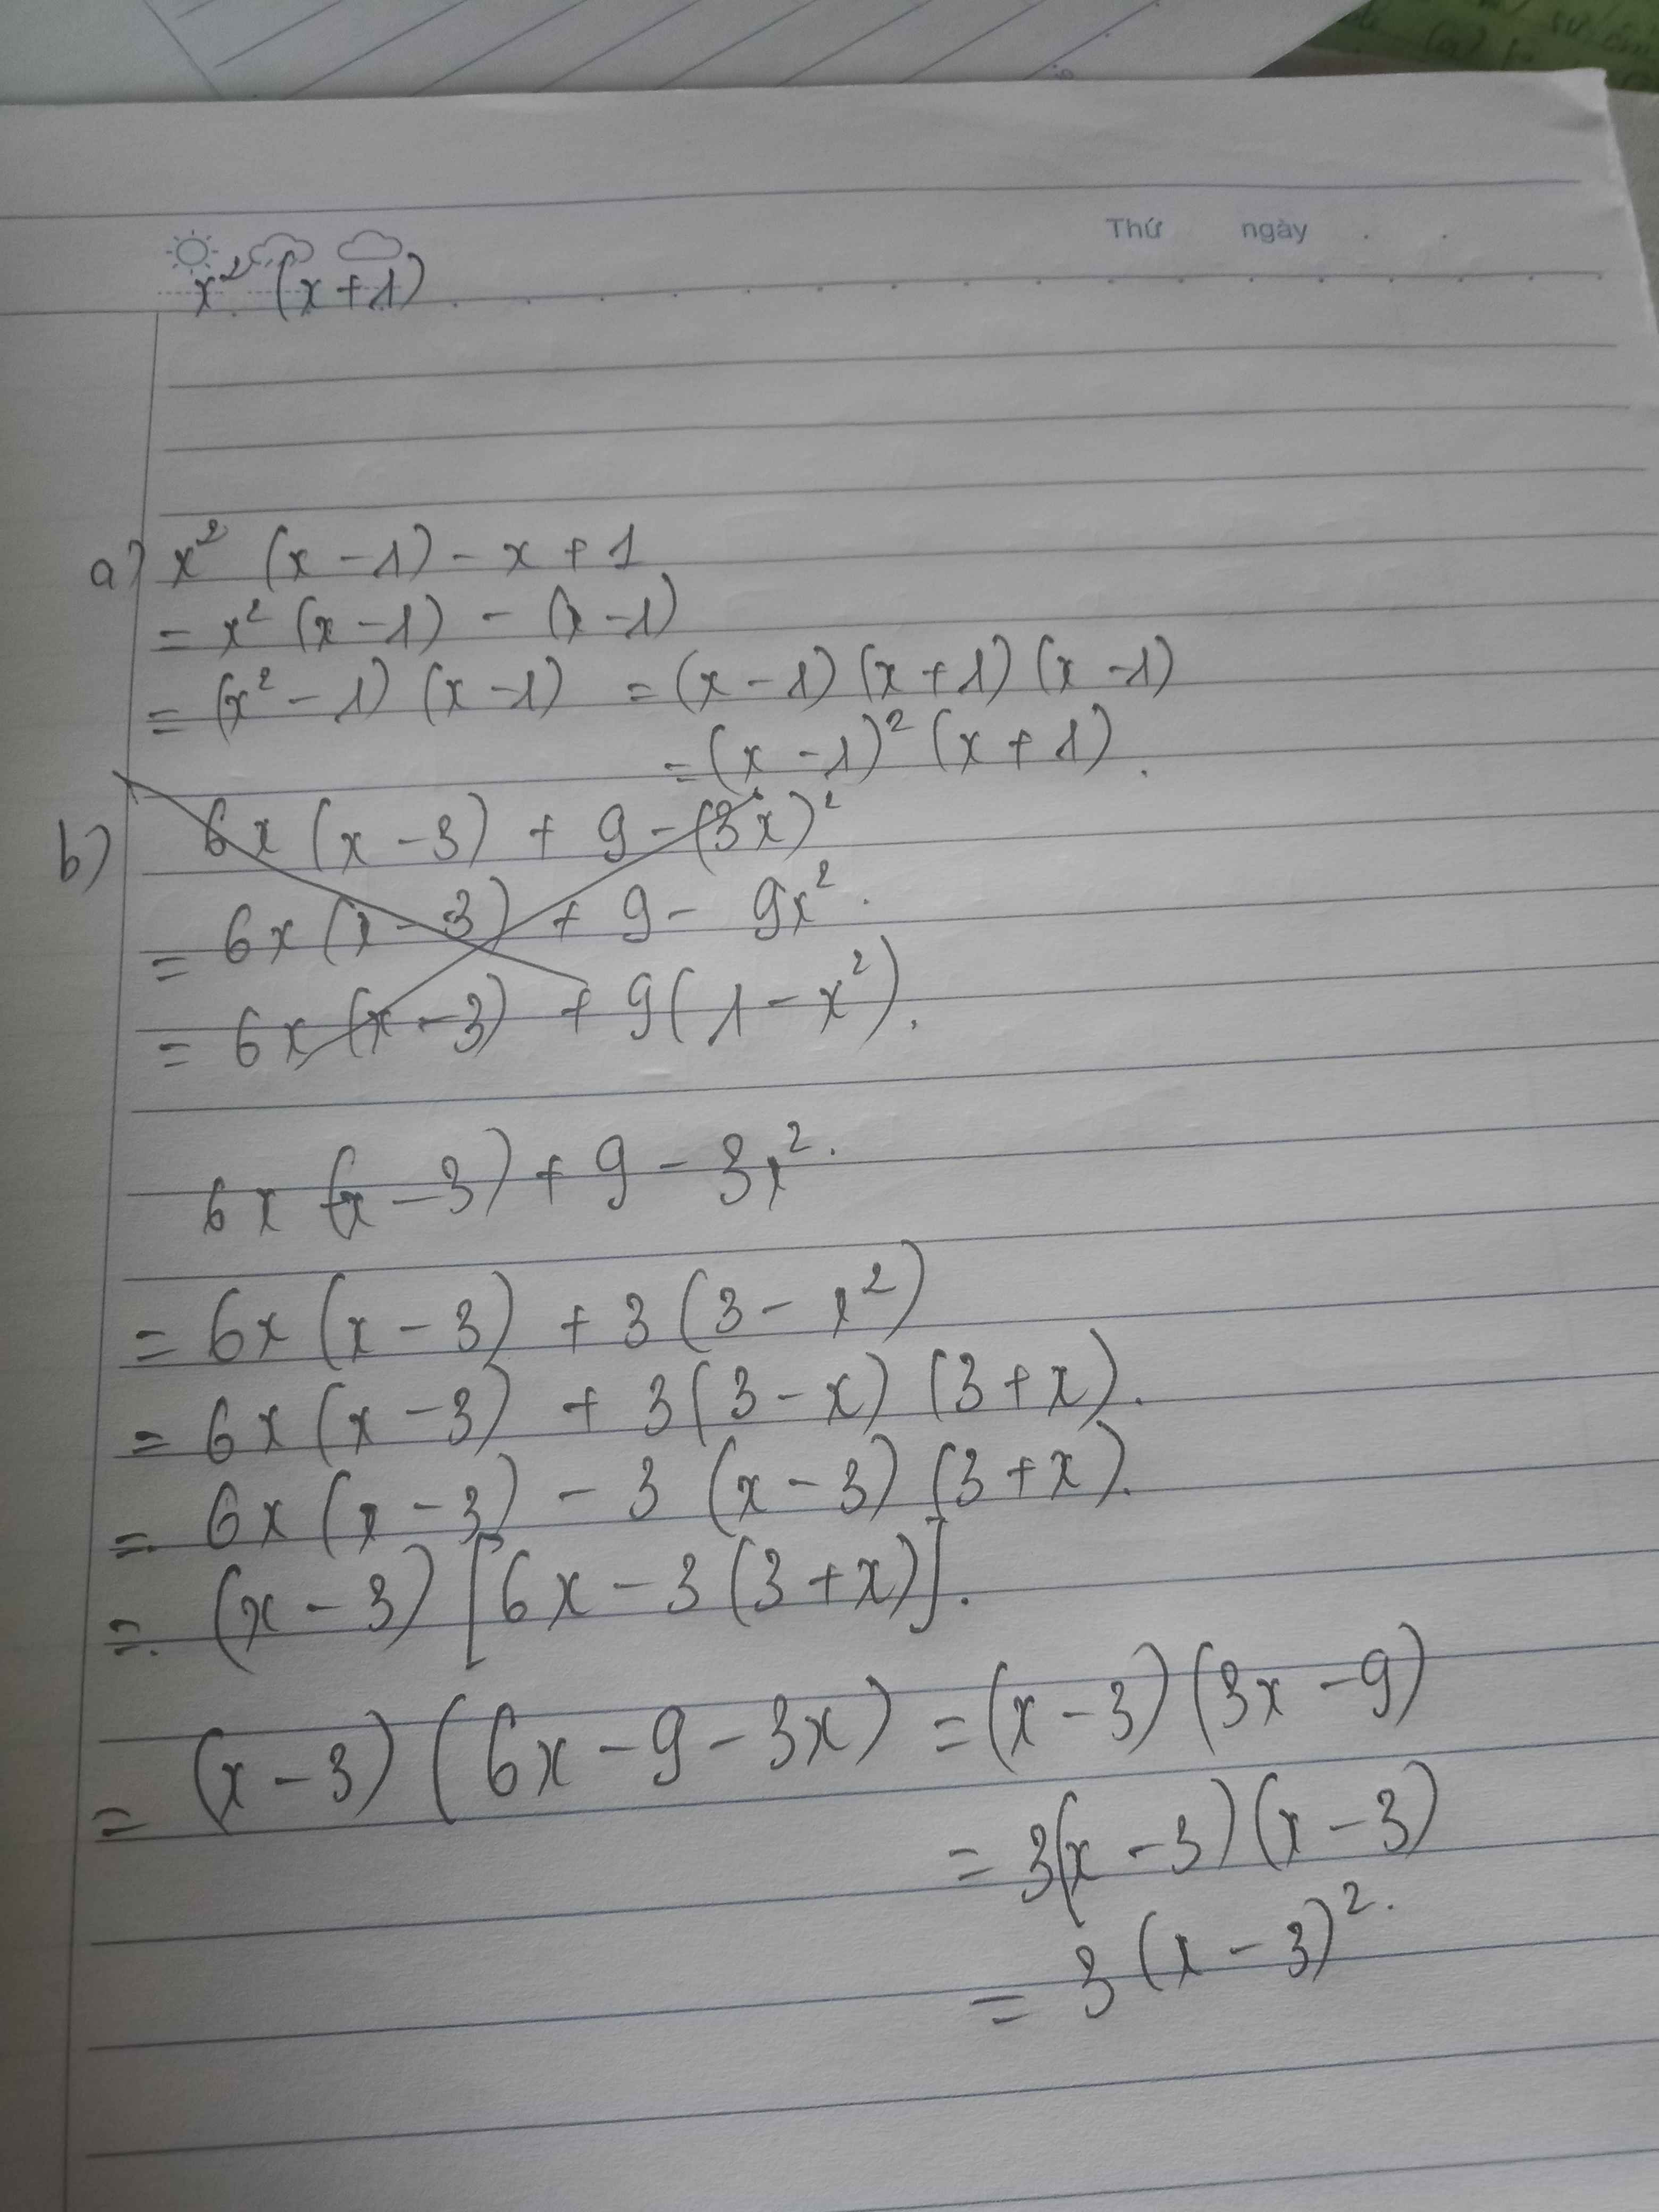 Thứ ngày
x² (x+1)
a) x² (x-1) - x + 1
= x² (x-1) - (x-1)
= (x²-1) (x-1) = (x-1) (x+1) (x-1)
= (x-1)² (x+1).
b) 6x (x-3) + 9 - (3x)²
= 6x (x-3) + 9 - 9x².
= 6x (x-3) + 9(1-x²).
6x (x-3) + 9 - 3x².
= 6x (x-3) + 3 (3-x²)
= 6x (x-3) + 3(3-x) (3+x).
= 6x (x-3) - 3 (x-3) (3+x).
= (x-3) [6x-3 (3+x)].
= (x-3) (6x-9-3x) = (x-3) (3x-9)
= 3(x-3) (x-3)
= 3 (x-3)².